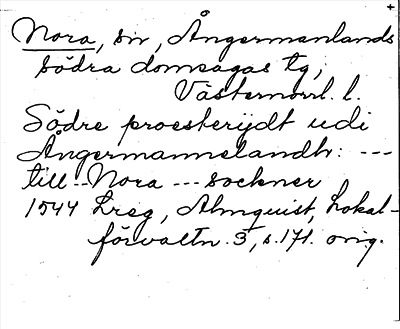 Nora, sn, Ångermanlands
södra domsagas tg,
Västernorrl. l.
Södre proesterijdt udi
Ångermannelandh: ---
till -- Nora --- sockner
1544 Lreg, Almquist, Lokal-
förvaltn. 3, s. 171. orig.